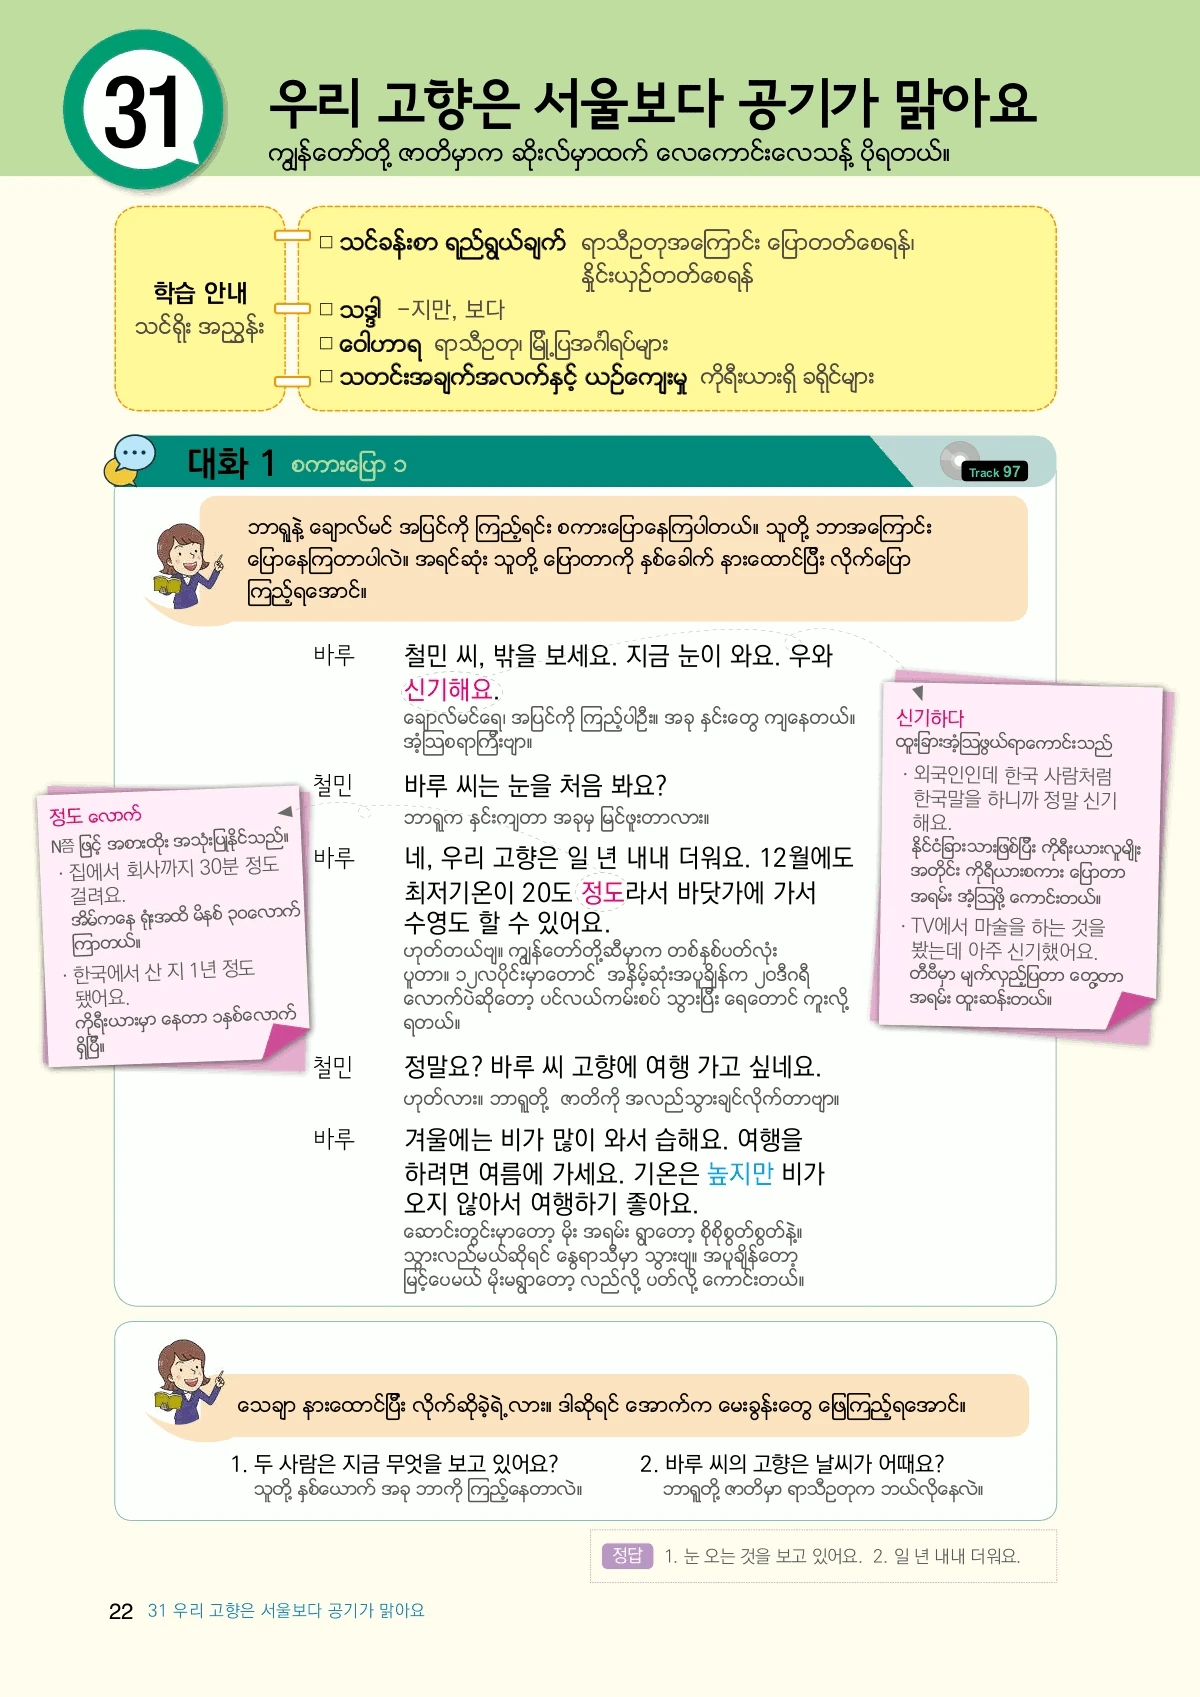 31
우리 고향은 서울보다 공기가 맑아요
ကျွန်တော်တို့ ဇာတိမှာက ဆိုးလ်မှာထက် လေကောင်းလေသန့် ပိုရတယ်။
학습 안내
သင်ရိုး အညွှန်း
□ သင်ခန်းစာ ရည်ရွယ်ချက် ရာသီဥတုအကြောင်း ပြောတတ်စေရန်၊
နှိုင်းယှဉ်တတ်စေရန်
□ သဒ္ဒါ -지만, 보다
□ ဝေါဟာရ ရာသီဥတု၊ မြို့ပြအင်္ဂါရပ်များ
□ သတင်းအချက်အလက်နှင့် ယဉ်ကျေးမှု ကိုရီးယားရှိ ခရိုင်များ
대화 1 စကားပြော ၁
Track 97
ဘာရူနဲ့ ချောလ်မင် အပြင်ကို ကြည့်ရင်း စကားပြောနေကြပါတယ်။ သူတို့ ဘာအကြောင်း
ပြောနေကြတာပါလဲ။ အရင်ဆုံး သူတို့ ပြောတာကို နှစ်ခေါက် နားထောင်ပြီး လိုက်ပြော
ကြည့်ရအောင်။
바루 철민 씨, 밖을 보세요. 지금 눈이 와요. 우와
신기해요.
ချောလ်မင်ရေ၊ အပြင်ကို ကြည့်ပါဦး။ အခု နှင်းတွေ ကျနေတယ်။
အံ့ဩစရာကြီးဗျာ။
철민 바루 씨는 눈을 처음 봐요?
ဘာရူက နှင်းကျတာ အခုမှ မြင်ဖူးတာလား။
바루 네, 우리 고향은 일 년 내내 더워요. 12월에도
최저기온이 20도 정도라서 바닷가에 가서
수영도 할 수 있어요.
ဟုတ်တယ်ဗျ။ ကျွန်တော်တို့ဆီမှာက တစ်နှစ်ပတ်လုံး
ပူတာ။ ၁၂လပိုင်းမှာတောင် အနိမ့်ဆုံးအပူချိန်က ၂၀ဒီဂရီ
လောက်ပဲဆိုတော့ ပင်လယ်ကမ်းစပ် သွားပြီး ရေတောင် ကူးလို့
ရတယ်။
철민 정말요? 바루 씨 고향에 여행 가고 싶네요.
ဟုတ်လား။ ဘာရူတို့ ဇာတိကို အလည်သွားချင်လိုက်တာဗျာ။
바루 겨울에는 비가 많이 와서 습해요. 여행을
하려면 여름에 가세요. 기온은 높지만 비가
오지 않아서 여행하기 좋아요.
ဆောင်းတွင်းမှာတော့ မိုး အရမ်း ရွာတော့ စိုစိုစွတ်စွတ်နဲ့။
သွားလည်မယ်ဆိုရင် နွေရာသီမှာ သွားဗျ။ အပူချိန်တော့
မြင့်ပေမယ် မိုးမရွာတော့ လည်လို့ ပတ်လို့ ကောင်းတယ်။
정도 လောက်
N쯤 ဖြင့် အစားထိုး အသုံးပြုနိုင်သည်။
· 집에서 회사까지 30분 정도
걸려요.
အိမ်ကနေ ရုံးအထိ မိနစ် ၃၀လောက်
ကြာတယ်။
· 한국에서 산 지 1년 정도
됐어요.
ကိုရီးယားမှာ နေတာ ၁နှစ်လောက်
ရှိပြီ။
신기하다
ထူးခြားအံ့ဩဖွယ်ရာကောင်းသည်
· 외국인인데 한국 사람처럼
한국말을 하니까 정말 신기
해요.
နိုင်ငံခြားသားဖြစ်ပြီး ကိုရီးယားလူမျိုး
အတိုင်း ကိုရီယားစကား ပြောတာ
အရမ်း အံ့ဩဖို့ ကောင်းတယ်။
· TV에서 마술을 하는 것을
봤는데 아주 신기했어요.
တီဗီမှာ မျက်လှည့်ပြတာ တွေ့တာ
အရမ်း ထူးဆန်းတယ်။
သေချာ နားထောင်ပြီး လိုက်ဆိုခဲ့ရဲ့လား။ ဒါဆိုရင် အောက်က မေးခွန်းတွေ ဖြေကြည့်ရအောင်။
1. 두 사람은 지금 무엇을 보고 있어요?
သူတို့ နှစ်ယောက် အခု ဘာကို ကြည့်နေတာလဲ။
2. 바루 씨의 고향은 날씨가 어때요?
ဘာရူတို့ ဇာတိမှာ ရာသီဥတုက ဘယ်လိုနေလဲ။
정답 1. 눈 오는 것을 보고 있어요. 2. 일 년 내내 더워요.
22 31 우리 고향은 서울보다 공기가 맑아요